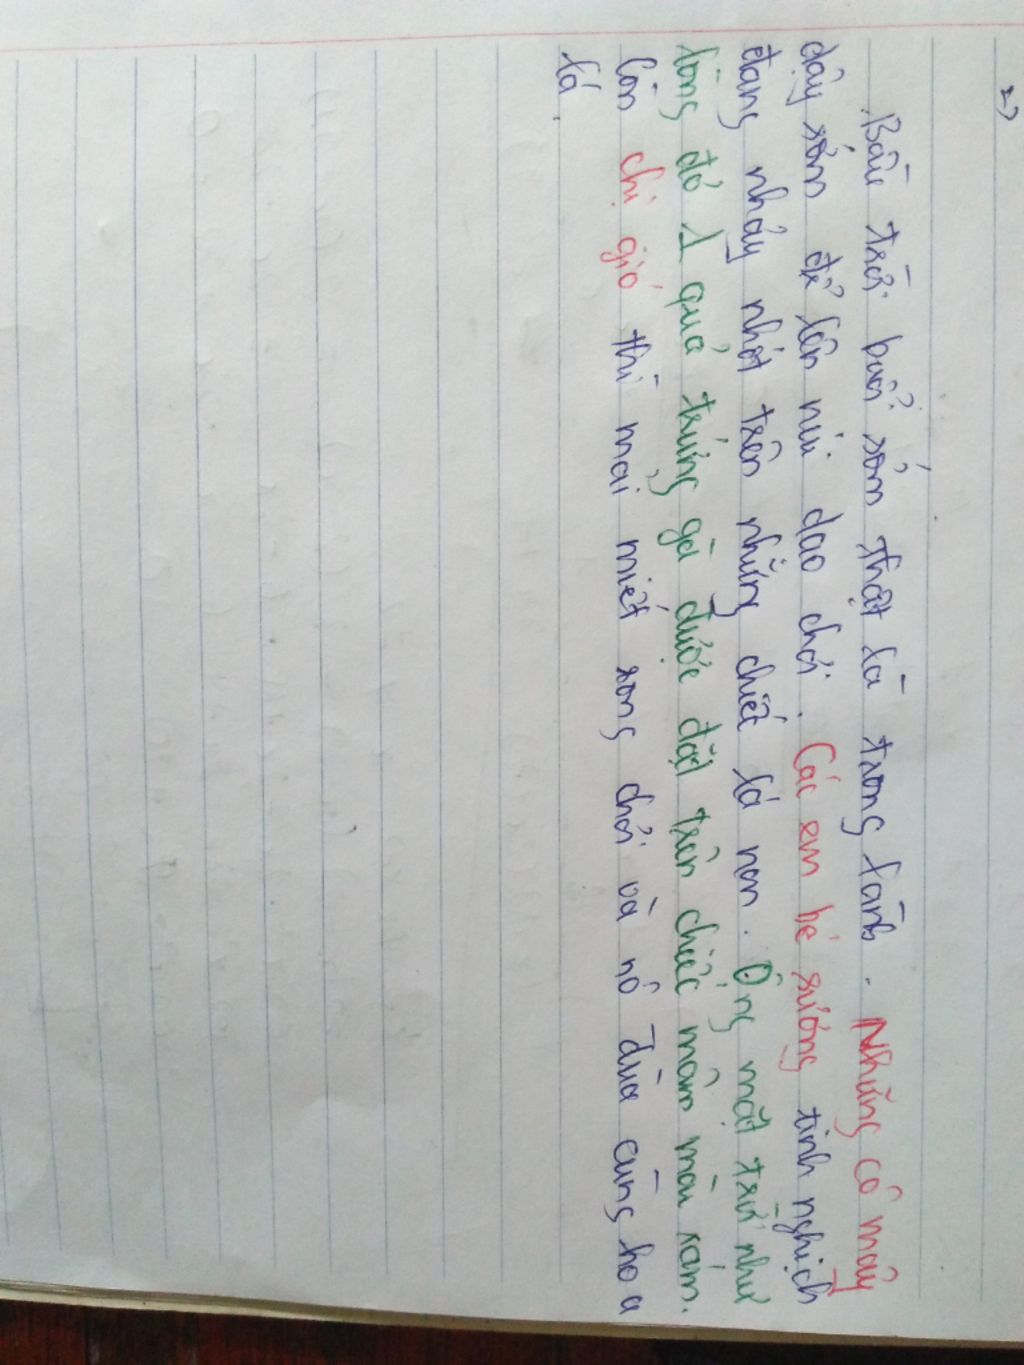 2)
Bầu trời buổi sớm thật là trong lành. Những cô mây
dậy sớm để lên núi dạo chơi. Các em bé sương tinh nghịch
đang nhảy nhót trên những chiếc lá non. Ông mặt trời như
lòng đỏ 1 quả trứng gà được đặt trên chiếc mâm màu xám.
Còn chị gió thì mải miết rong chơi và nô đùa cùng hoa
lá.